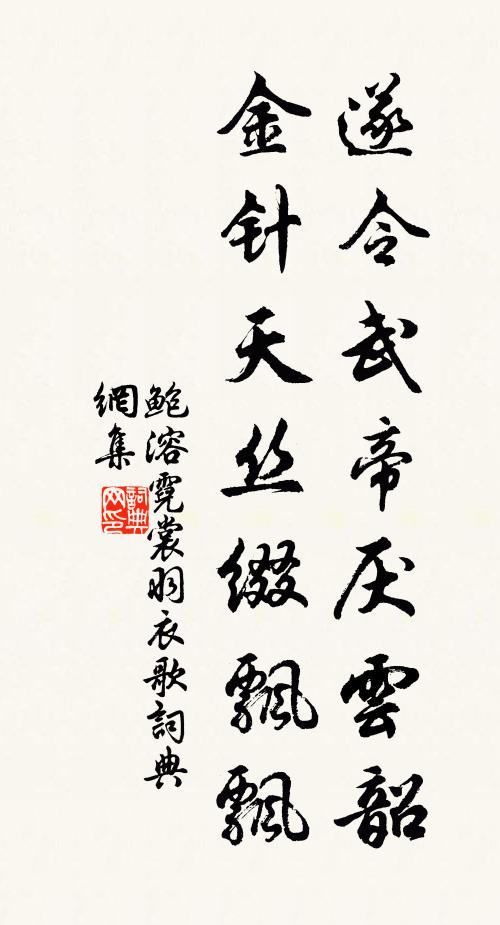 遂令武帝厌雲韶
金针天丝缀飄飄
鲍溶霓裳羽衣歌詞典
網集
詞典网印